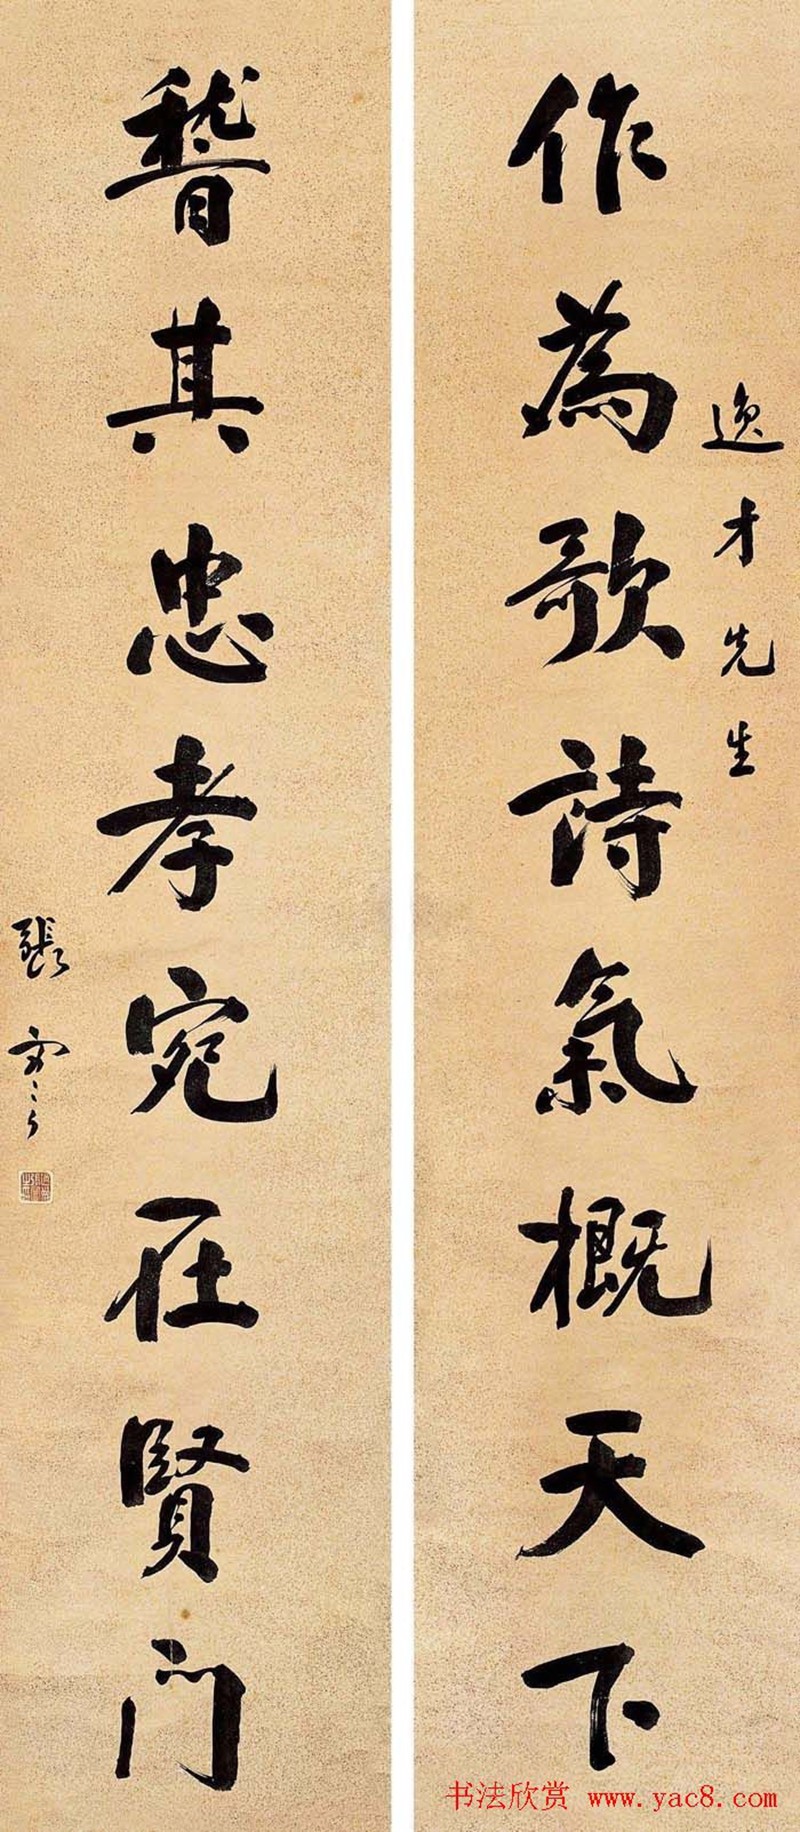 逸才先生
作為歌詩氣概天下
稽其忠孝宛在賢门
張謇
书法欣赏 www.yac8.com